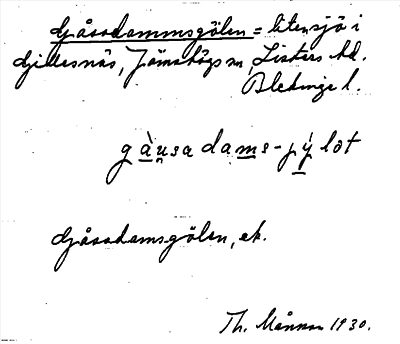 Gåsadammsgölen = liten sjö i
Gillesnäs, Jämshögs sn, Listers hd.
Blekinge l.
gàusadams-pýlot
Gåsadamsgölen, ek.
Th. Månsson 1930.